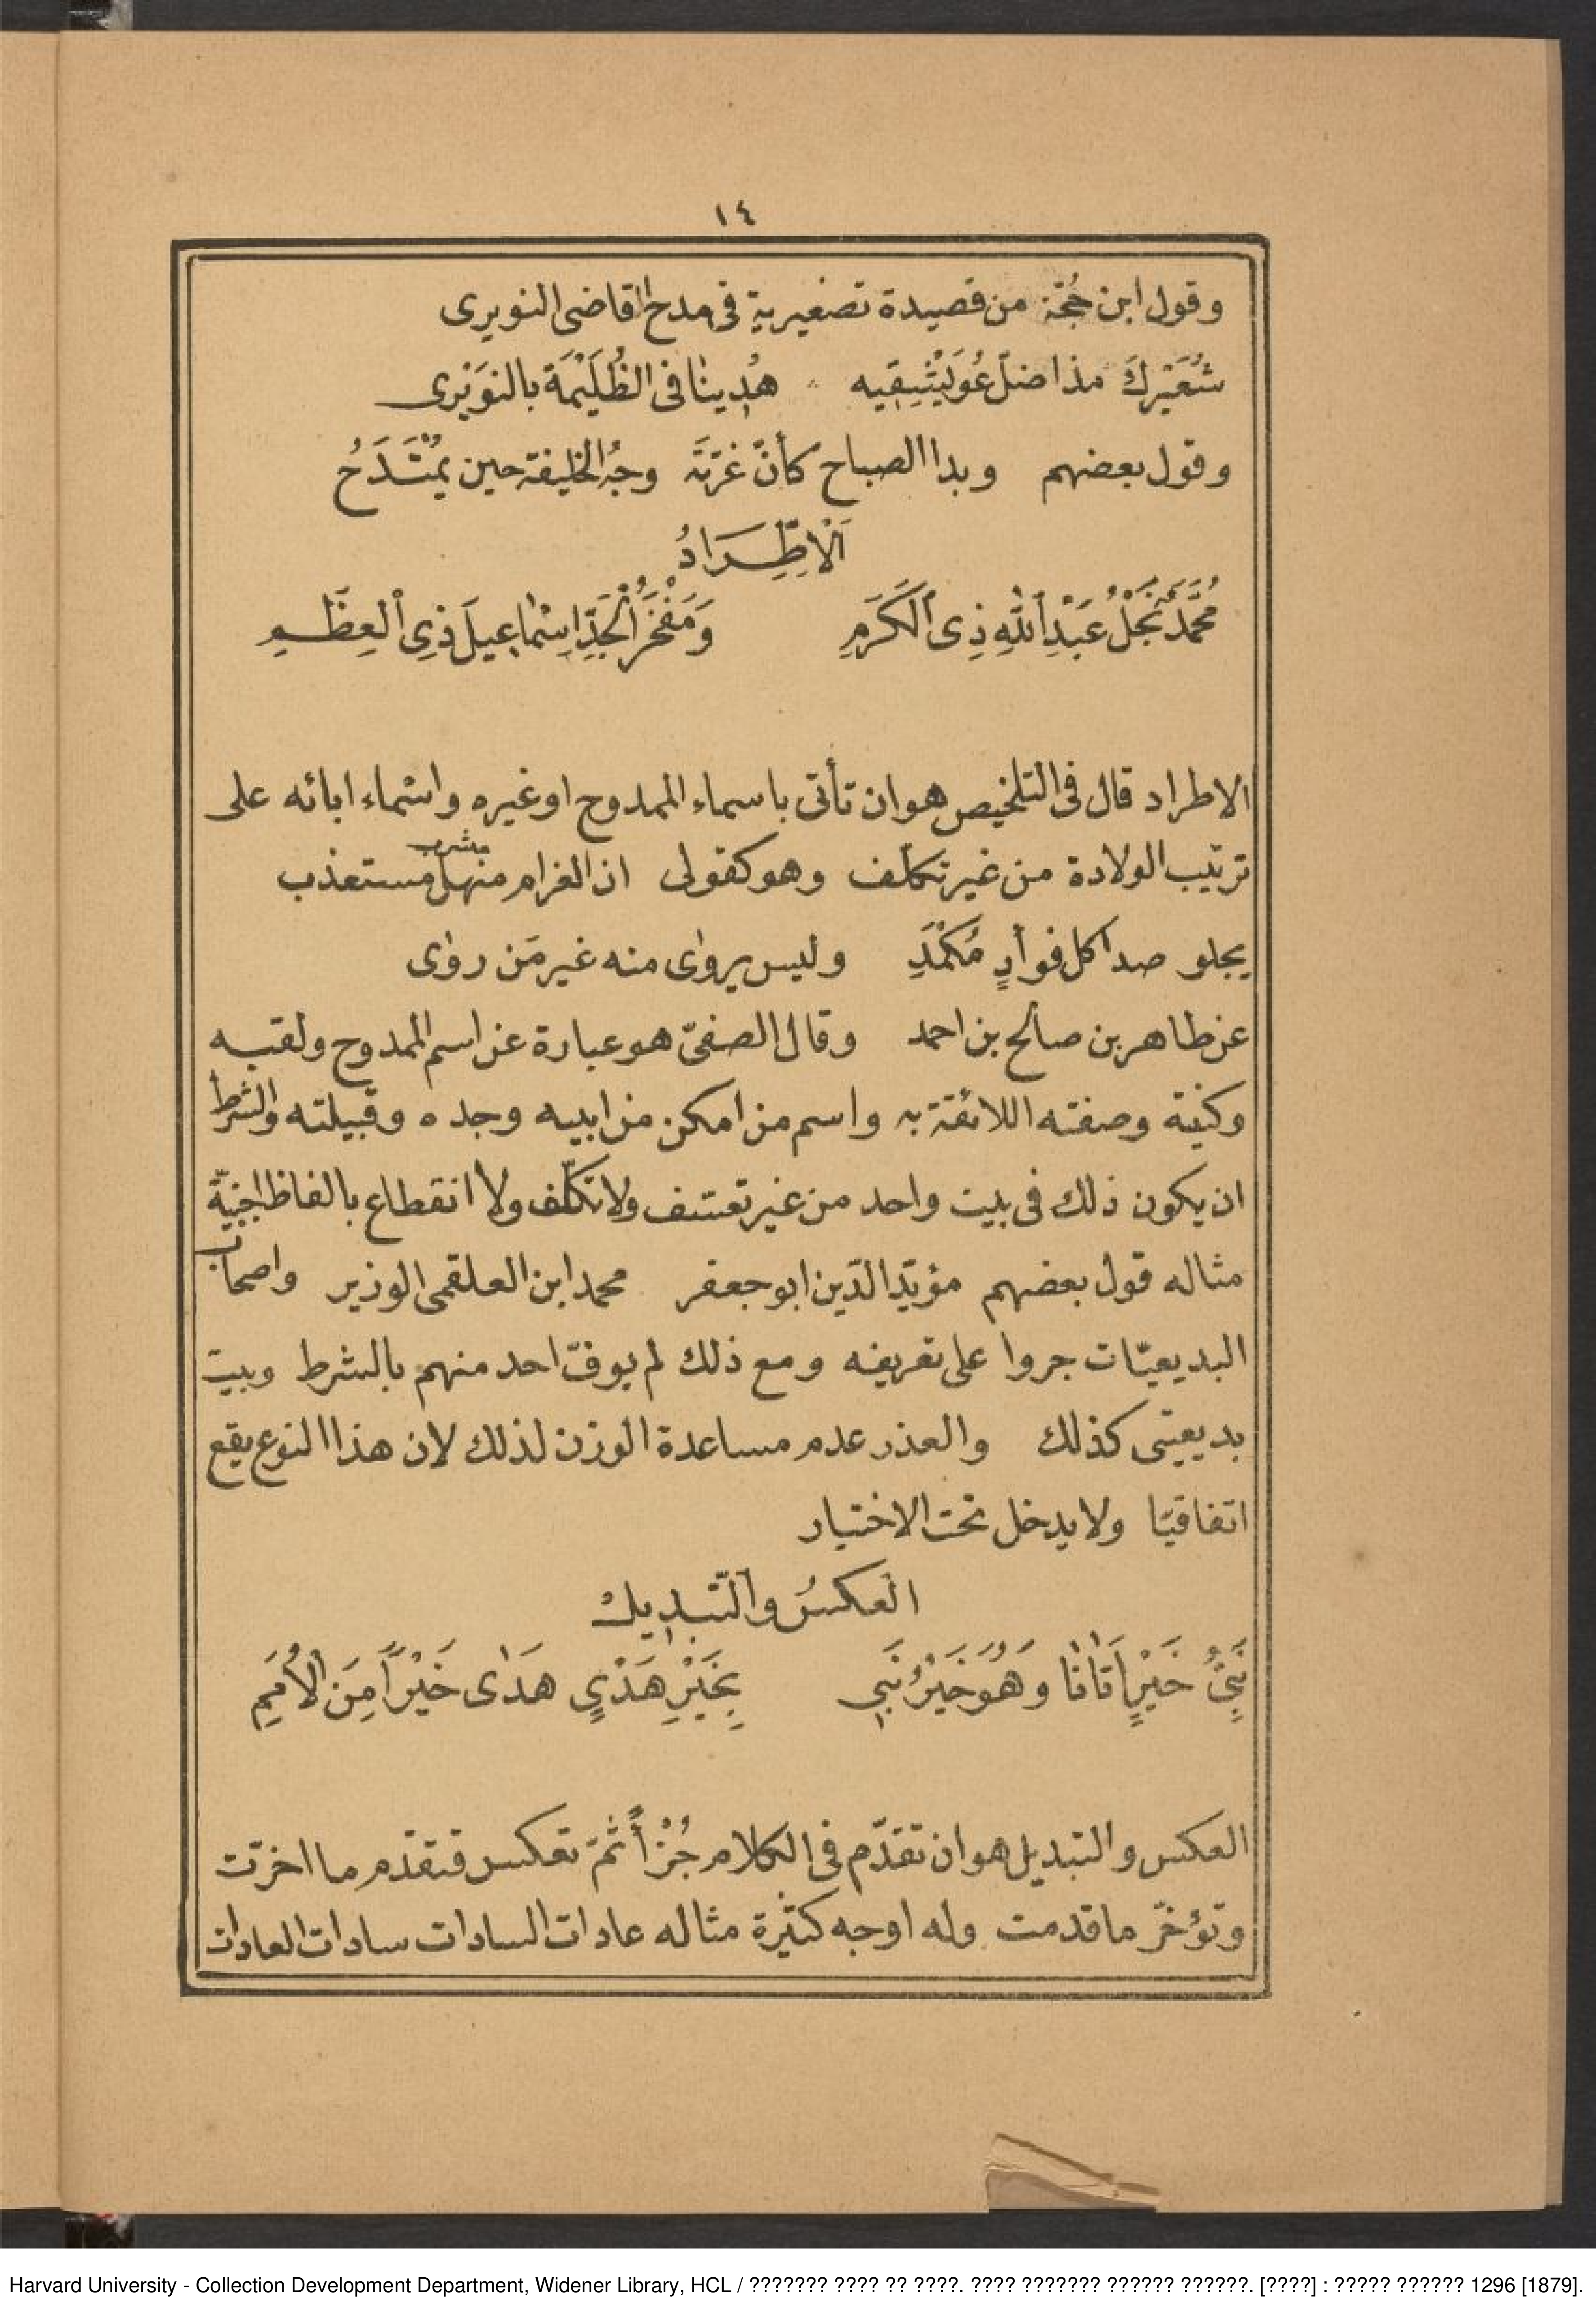 ١٤
وقول ابن حُجّة من قصيدة تصغيرية فى مدح القاضى النويرى
شُعَيْرك مذ اضلّ عُوَيْشِقِيه هُدِينا فى الظُلَيْمَة بالنوَيْرى
وقول بعضهم وبدا الصباح كأنّ غرّته وجهُ الخليفة حين يُمْتَدَحُ
اَلْاِطِّرَادُ
مُحَمَّدٌ نَجْلُ عَبْدِ اللهِ ذِى الْكَرَمِ وَمَفْخَرُ الْجَدِّ اِسْمٰاعِيلَ ذِى الْعِظَمِ
الاطراد قال فى التلخيص هو ان تأتى باسماء الممدوح او غيره واسماء ابائه على
ترتيب الولادة من غير تكلف وهو كقولى ان الغرام منهل مستعذب
مشرب
يجلو صدا كل فوأدٍ مُكْمَدِ وليس يروٰى منه غير مَن روٰى
عن طاهر بن صالح بن احمد وقال الصفىّ هو عبارة عن اسم الممدوح ولقبه
وكنية وصفته اللائقة به واسم من امكن من ابيه وجده وقبيلته والشرط
ان يكون ذلك فى بيت واحد من غير تعسف ولا تكلّف ولا انقطاع بالفاظ اجنبيّة
مثاله قول بعضهم مؤيّد الدّين ابو جعفر محمد ابن العلقمى الوزير واصحاب
البديعيّات جروا على تعريفه ومع ذلك لم يوفّ احد منهم بالشرط وبيت
بديعيتى كذلك والعذر عدم مساعدة الوزن لذلك لان هذا النوع يقع
اتفاقيّا ولا يدخل تحت الاختيار
العكسُ والتّبديل
نَبِىُّ خَيْرٍ اَتٰانٰا وَهُوَ خَيْرُ نَبِى بِخَيْرِ هَدْىٍ هَدٰى خَيْراً مِنَ الْاُمَمِ
العكس والتبديل هو ان تقدّم فى الكلام جُزْأً ثمّ تعكس فتقدّم ما اخرّت
وتؤخّر ما قدمت وله اوجه كثيرة مثاله عادات السادات سادات العادات
Harvard University - Collection Development Department, Widener Library, HCL / ??????? ???? ?? ????. ???? ??????? ?????? ??????. [????] : ????? ?????? 1296 [1879].